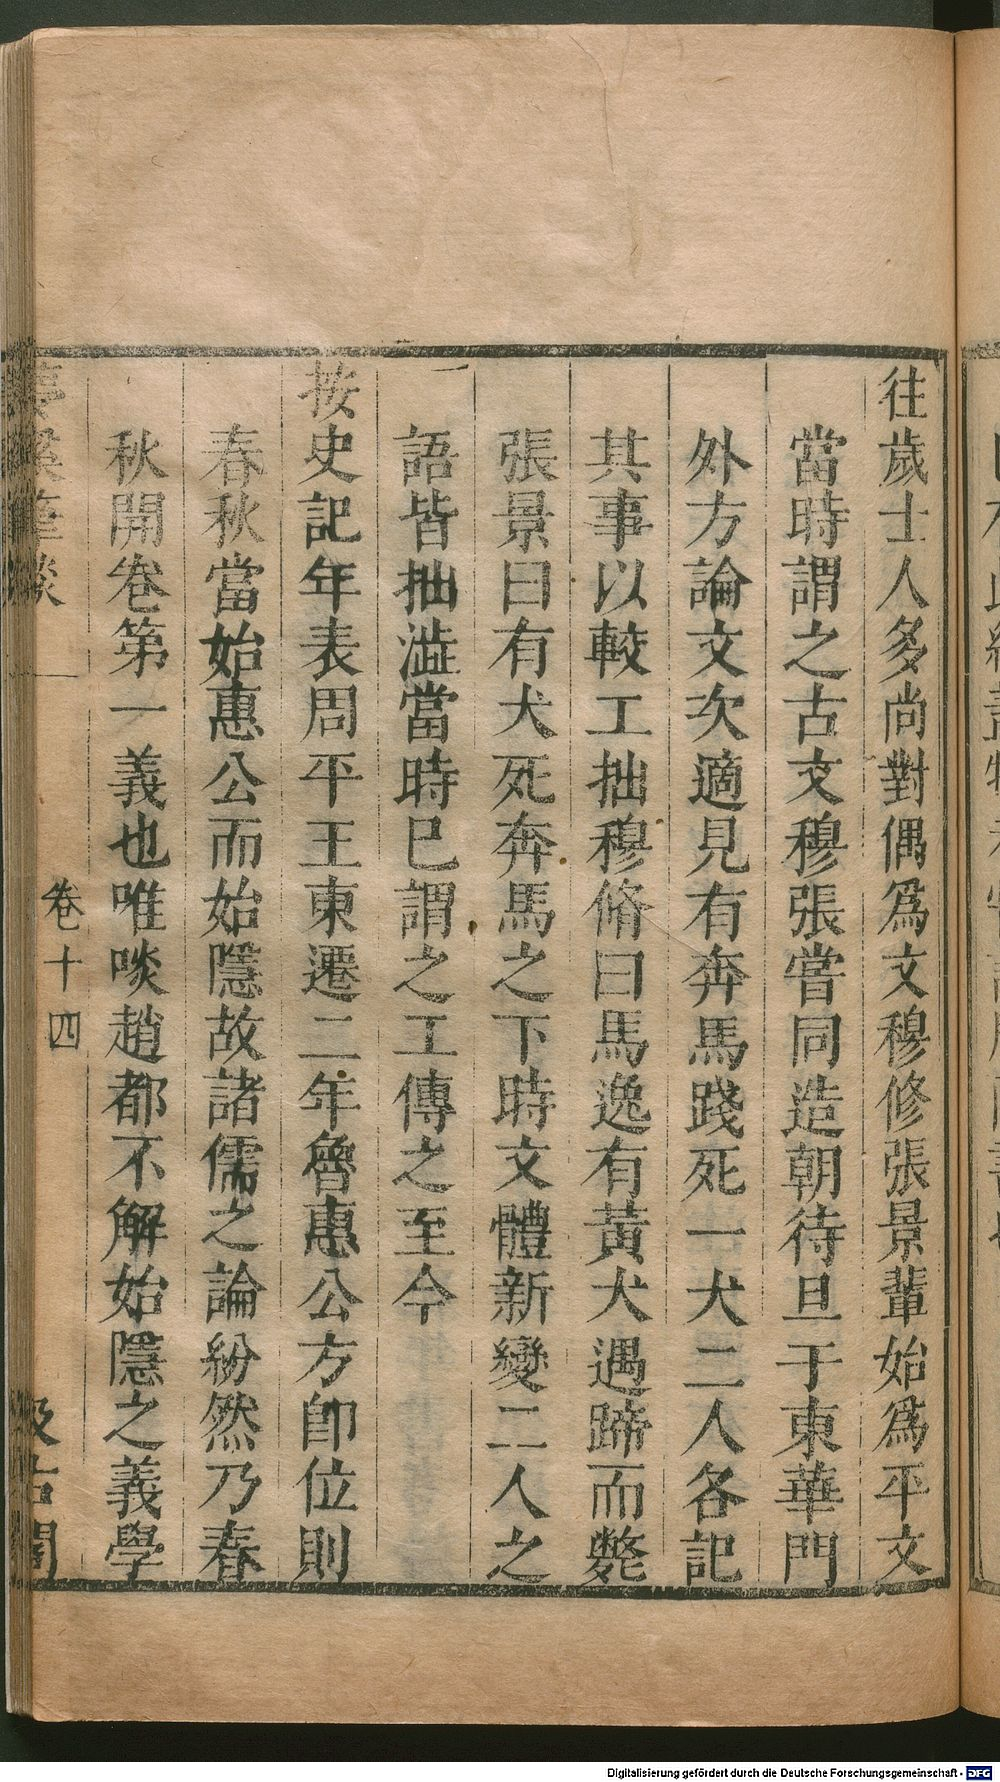 往歲士人多尚對偶爲文穆修張景輩始爲平文
當時謂之古文穆張嘗同造朝待旦于東華門
外方論文次適見有奔馬踐死一犬二人各記
其事以較工拙穆脩曰馬逸有黃犬遇蹄而斃
張景曰有犬死奔馬之下時文體新變二人之
語皆拙澁當時已謂之工傳之至今
按史記年表周平王東遷二年魯惠公方卽位則
春秋當始惠公而始隱故諸儒之論紛然乃春
秋開卷第一義也唯啖趙都不解始隱之義學
夢溪筆談
卷十四
汲古閣
Digitalisierung gefördert durch die Deutsche Forschungsgemeinschaft - DFG